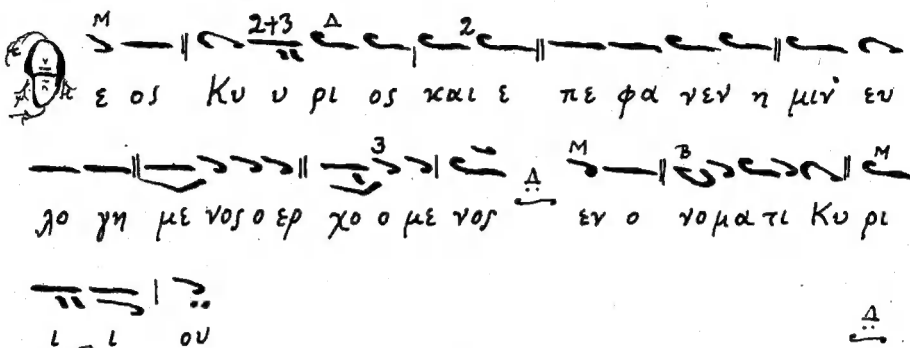 Μ 2+3 Δ 2
ε ος Κυ υ ρι ος και ε πε φα νεν η μιν· ευ
3 Μ Β Μ
λο γη με νος ο ερ χο ο με νος Δ εν ο νομα τι Κυ ρι
ι ι ου Δ